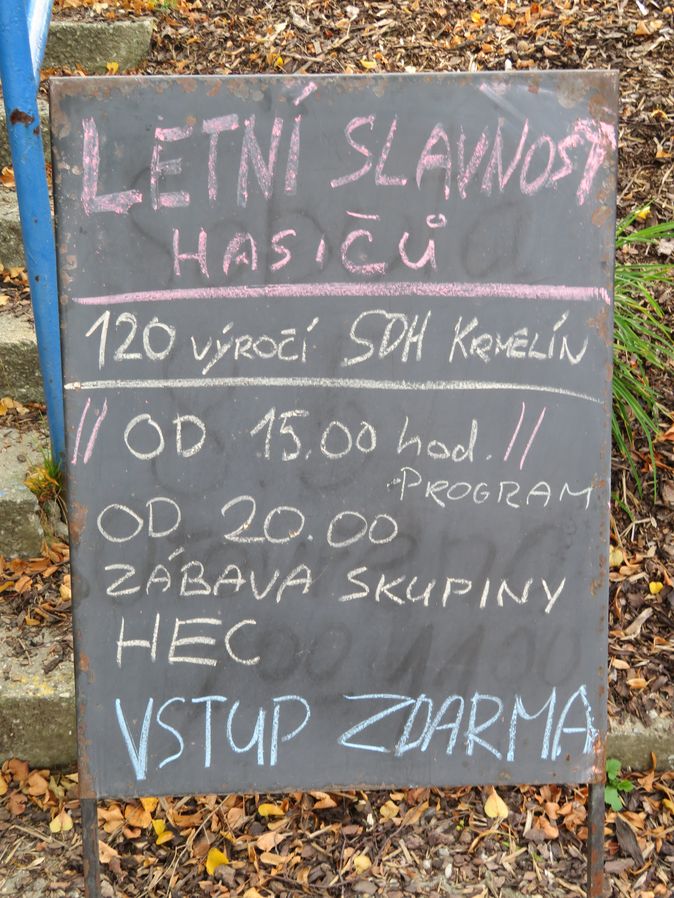 LETNÍ SLAVNOST
HASIČŮ
120 VÝROČÍ SDH KRMELÍN
// OD 15.00 hod. //
PROGRAM
OD 20.00
ZÁBAVA SKUPINY
HEC
VSTUP ZDARMA